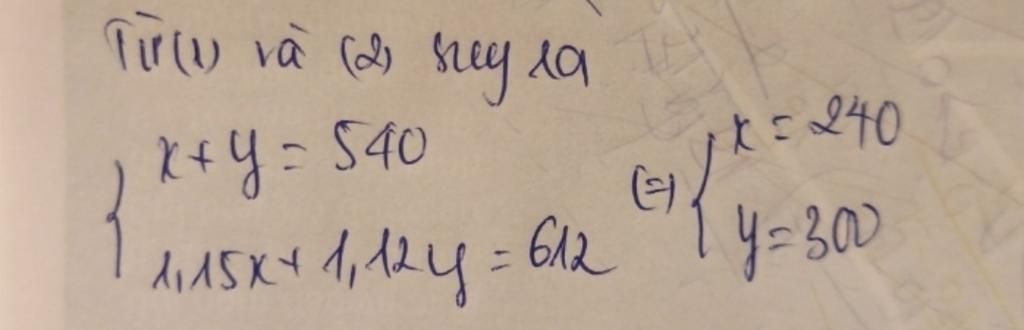 Từ (1) và (2) suy ra
{ x + y = 540
1,15x + 1,12y = 612
(=) { x = 240
y = 300